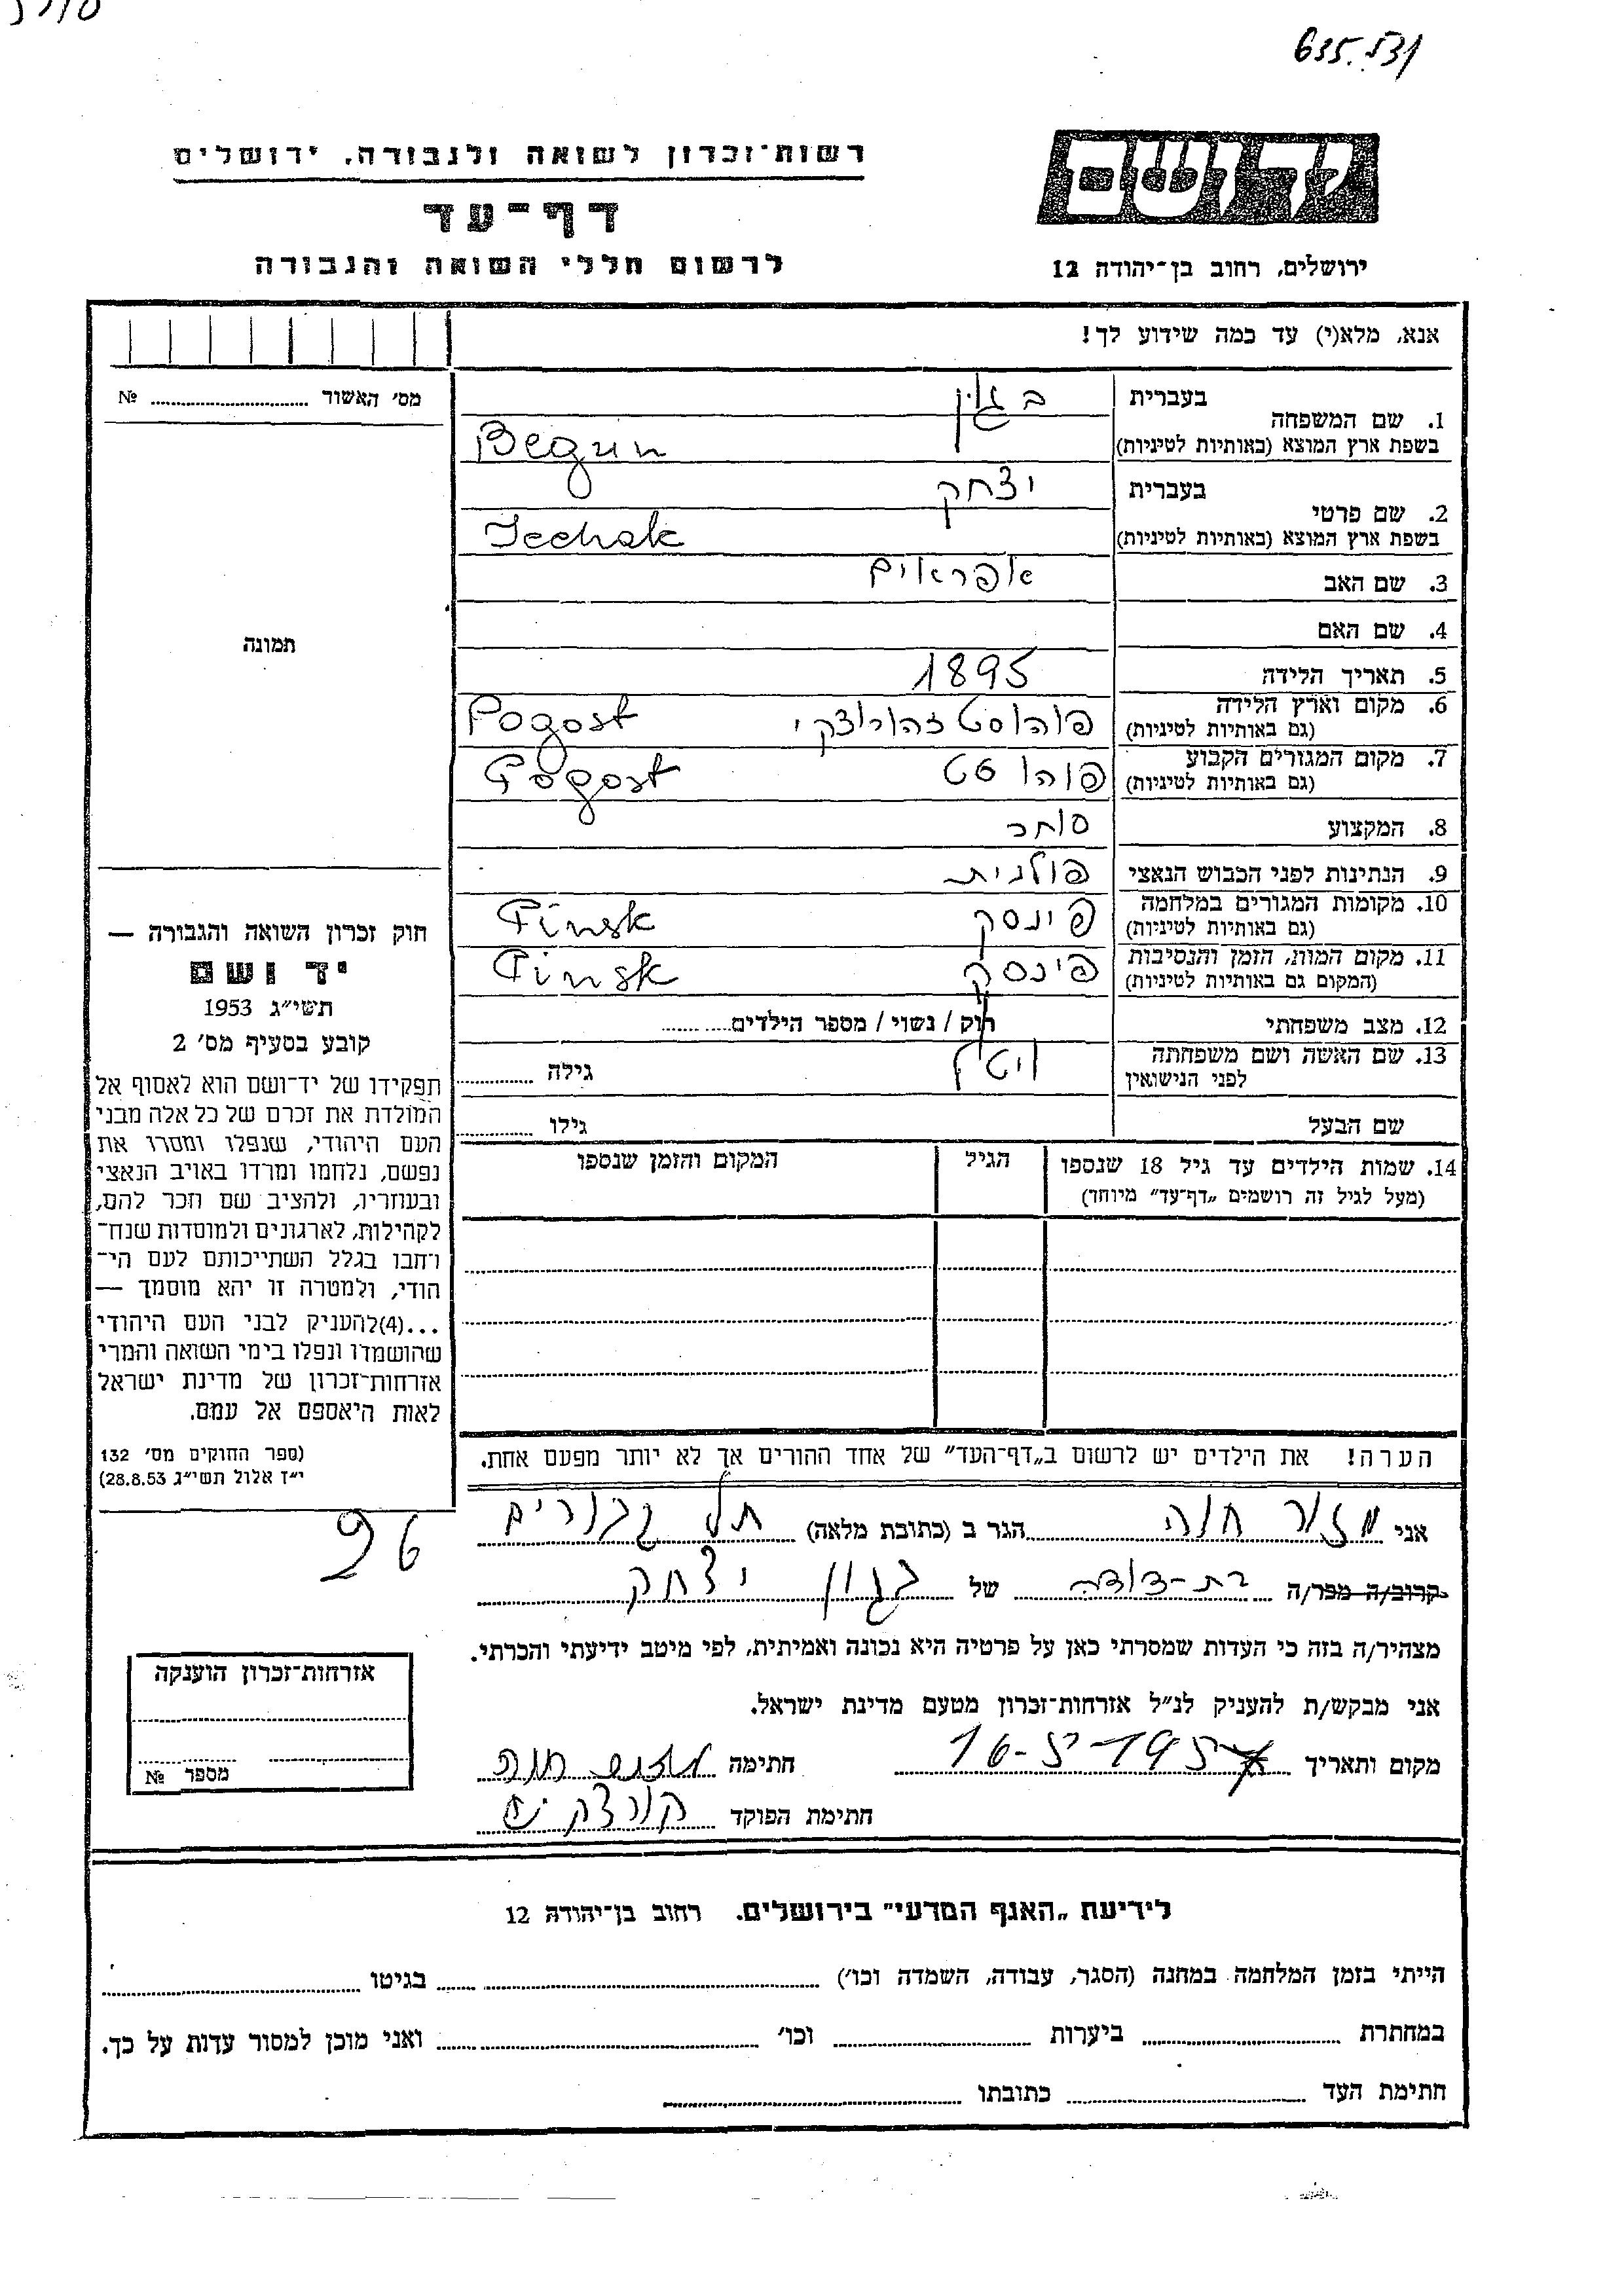 635.531
רשות־זכרון לשואה ולגבורה, ירושלים
דף־עד
לרשום חללי השואה והגבורה
יד ושם
ירושלים, רחוב בן־יהודה 12
אנא, מלא(י) עד כמה שידוע לך!
מס׳ האשור № 
1. שם המשפחה
בעברית בגון
בשפת ארץ המוצא (באותיות לטיניות) Begun
2. שם פרטי
בעברית יצחק
בשפת ארץ המוצא (באותיות לטיניות) Icchak
3. שם האב אפראים
4. שם האם
תמונה
5. תאריך הלידה 1895
6. מקום וארץ הלידה פוהוסט זהורוצקי Pogost
(גם באותיות לטיניות)
7. מקום המגורים הקבוע פוהוסט Pogost
(גם באותיות לטיניות)
8. המקצוע סוחר
9. הנתינות לפני הכבוש הנאצי פולנית
10. מקומות המגורים במלחמה פינסק Pinsk
(גם באותיות לטיניות)
11. מקום המות, הזמן והנסיבות פינסק Pinsk
(המקום גם באותיות לטיניות)
12. מצב משפחתי רוק / נשוי / מספר הילדים
13. שם האשה ושם משפחתה גילה
לפני הנישואין
שם הבעל גילו
14. שמות הילדים עד גיל 18 שנספו הגיל המקום והזמן שנספו
(מעל לגיל זה רושמים „דף־עד״ מיוחד)
חוק זכרון השואה והגבורה —
יד ושם
תשי״ג 1953
קובע בסעיף מס׳ 2
תפקידו של יד־ושם הוא לאסוף אל
המולדת את זכרם של כל אלה מבני
העם היהודי, שנפלו ומסרו את
נפשם, נלחמו ומרדו באויב הנאצי
ובעוזריו, ולהציב שם וזכר להם,
לקהילות, לארגונים ולמוסדות שנח־
רחבו בגלל השתייכותם לעם הי־
הודי, ולמטרה זו יהא מוסמך —
...(4)להעניק לבני העם היהודי
שהושמדו ונפלו בימי השואה והמרי
אזרחות־זכרון של מדינת ישראל
לאות היאספם אל עמם.
(ספר החוקים מס׳ 132
י״ז אלול תשי״ג 28.8.53)
הערה! את הילדים יש לרשום ב„דף־העד״ של אחד ההורים אך לא יותר מפעם אחת.
אני מזור חוה הגר ב (כתובת מלאה) תל גבורים
96
קרוב/ה מכר/ה בת-דודה של בגון יצחק
מצהיר/ה בזה כי העדות שמסרתי כאן על פרטיה היא נכונה ואמיתית, לפי מיטב ידיעתי והכרתי.
אני מבקש/ת להעניק לנ״ל אזרחות־זכרון מטעם מדינת ישראל.
מקום ותאריך 16-5-1957 חתימה מזור חוה
חתימת הפוקד
אזרחות־זכרון הוענקה
מספר №
לידיעת „האגף המדעי״ בירושלים. רחוב בן־יהודה 12
הייתי בזמן המלחמה במחנה (הסגר, עבודה, השמדה וכו׳) בגיטו
במחתרת ביערות וכו׳ ואני מוכן למסור עדות על כך.
חתימת העד כתובתו